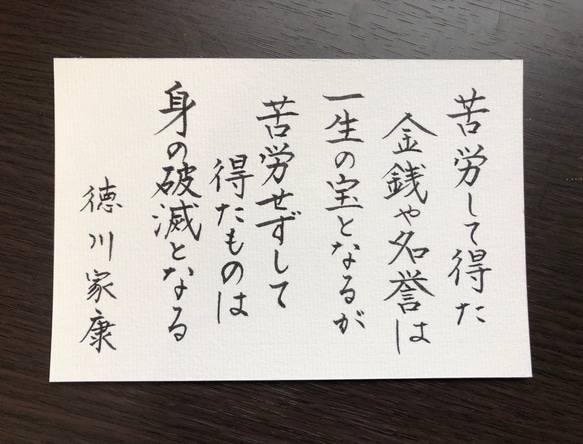 苦労して得た
金銭や名誉は
一生の宝となるが
苦労せずして
得たものは
身の破滅となる
徳川家康